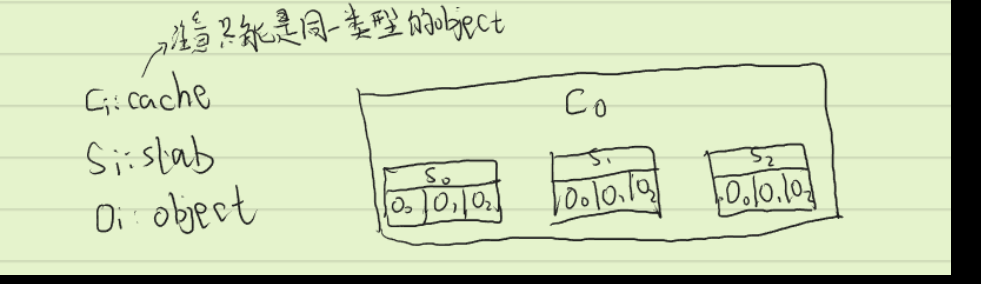 注意只能是同一类型的object
Ci: cache
Si: slab
Oi: object
C0
S0
O0 O1 O2
S1
O0 O1 O2
S2
O0 O1 O2